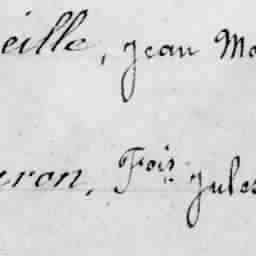 eille, Jean Ma
uron, Fois Jules